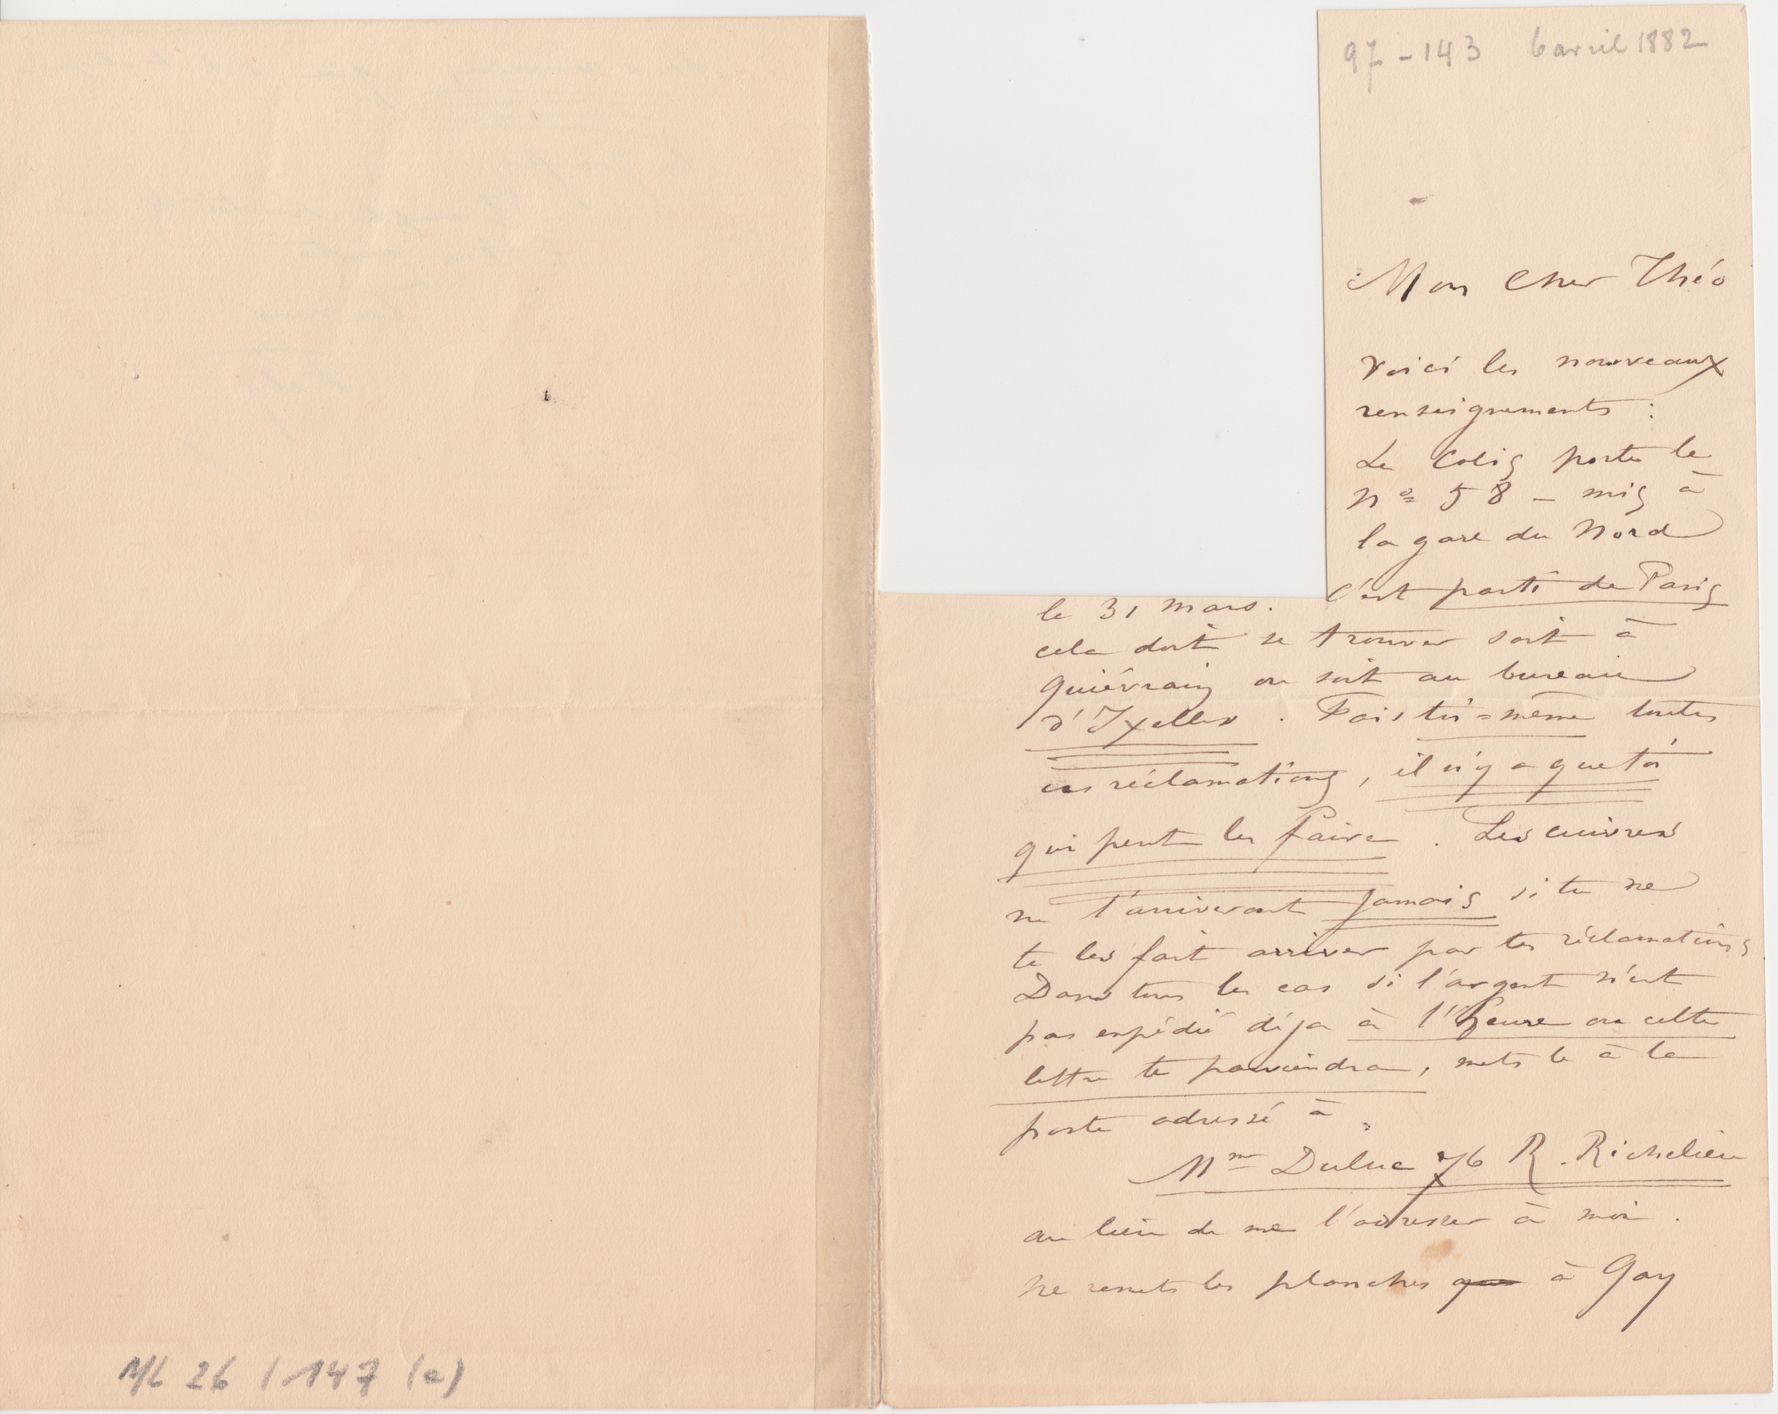 97-143 6 avril 1882
Mon Cher Théo
Voici les nouveaux
renseignements :
Le Colis porte le
Nº 58 – mis à
la gare du Nord
C'est parti de Paris
le 31 mars.
cela doit se trouver soit à
Quiévrain ou soit au bureau
d'Ixelles. Fais toi=même toutes
ces réclamations, il n'y a que toi
qui peut les faire. Les cuivres
ne t'arriveront jamais si tu ne
te les fait arriver par tes réclamations
Dans tous les cas si l'argent n'est
pas expédié déja à l'heure ou cette
lettre te parviendra, mets le à la
poste adressé à
Mme Duluc 76 R. Richelieu
au lieu de me l'adresser à moi.
Ne remets les planches que à Gay
ML 26 / 147 (a)